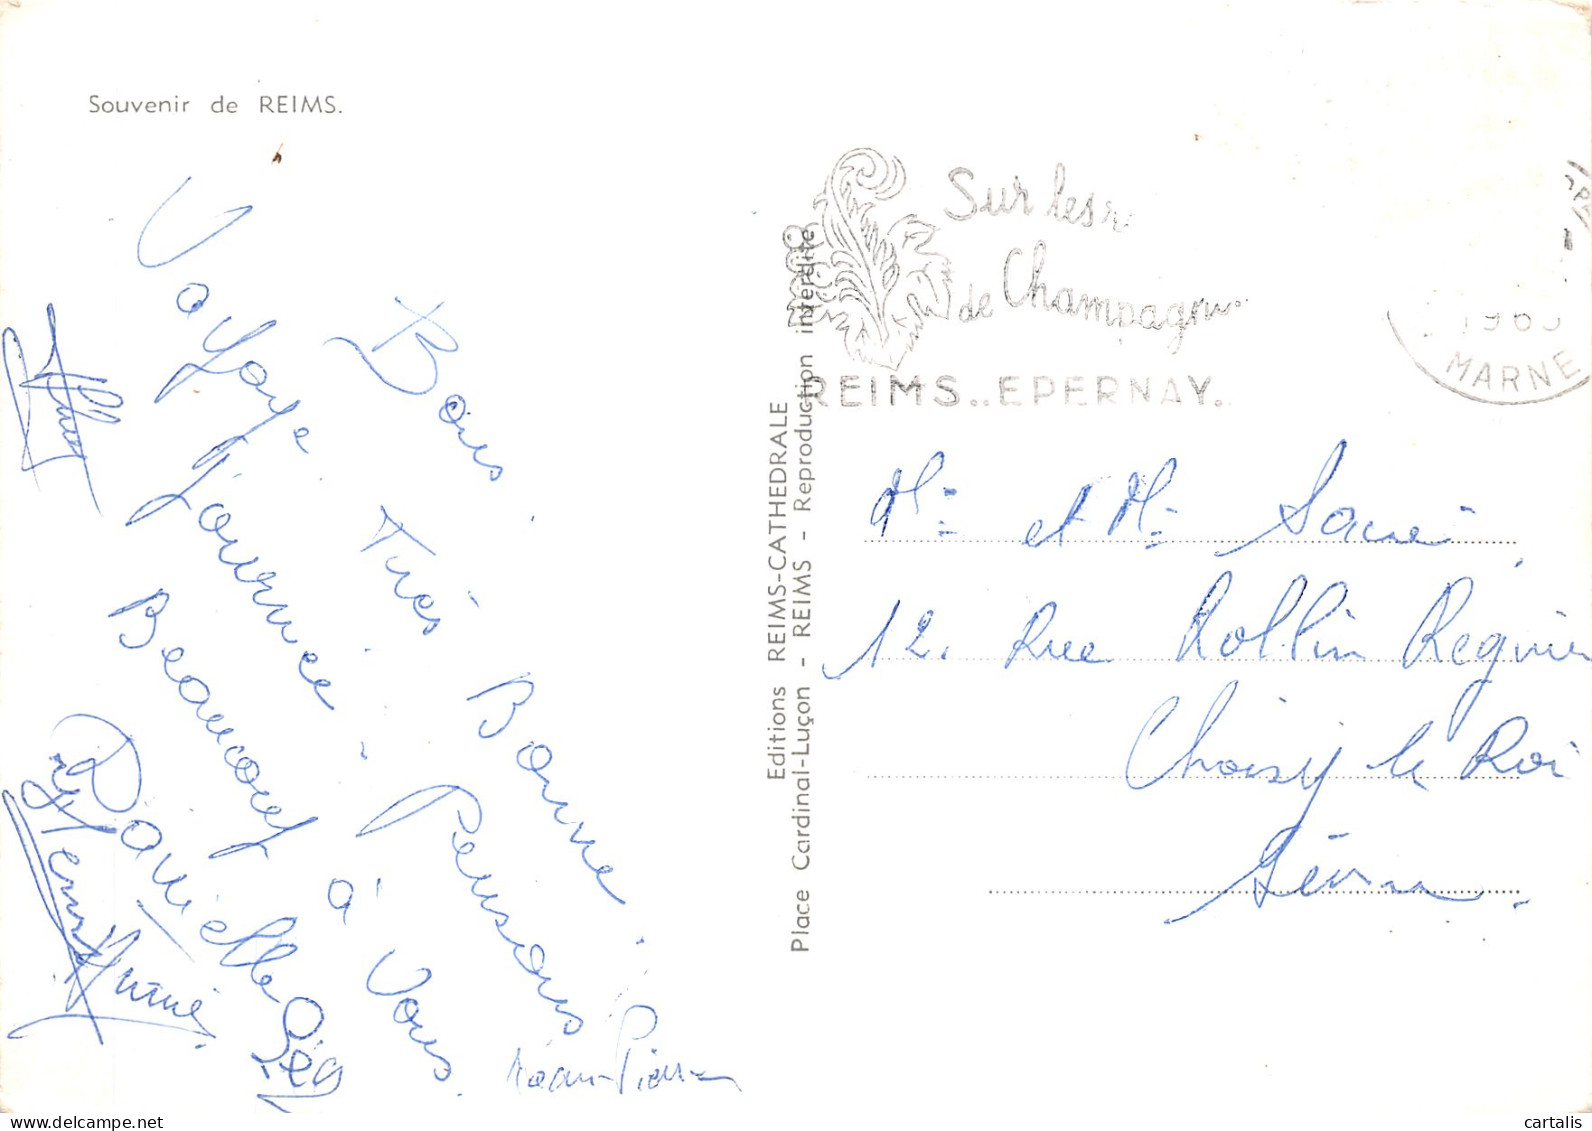 Souvenir de REIMS.
Bons
Voyage Très Bonne
Journée - Pensons
Beaucoup à Vous.
Danielle
Jean-Pierre
Editions REIMS-CATHEDRALE
Place Cardinal-Luçon - REIMS - Reproduction interdite
Sur les
de Champagne
REIMS.. EPERNAY.
MARNE
Mr et Me
12. Rue Rollin Regnier
Choisy le Roi
Seine.
www.delcampe.net
cartalis